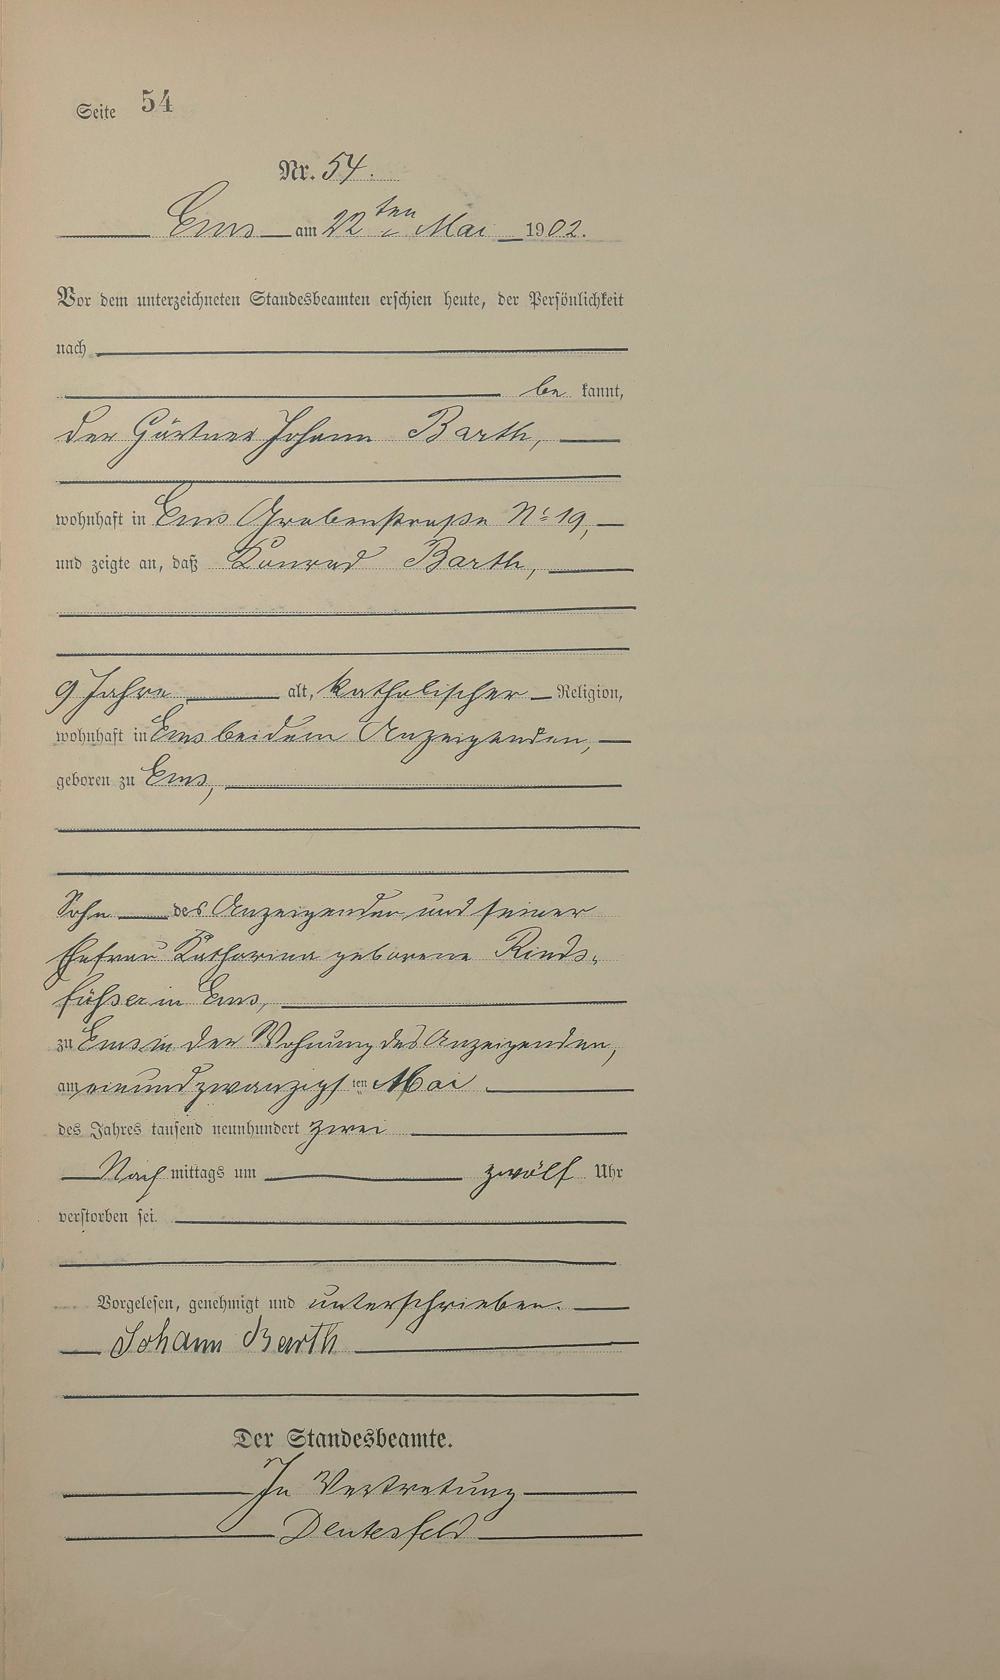 Seite 54
Nr. 54.
Ems am 22ten Mai 1902.
Vor dem unterzeichneten Standesbeamten erschien heute, der Persönlichkeit
nach
be kannt,
der Gärtner Johann Barth,
wohnhaft in Ems Grabenstraße No 19,
und zeigte an, daß Konrad Barth,
9 Jahre alt, katholischer Religion,
wohnhaft in Ems bei dem Anzeigenden,
geboren zu Ems,
Sohn des Anzeigenden und seiner
Ehefrau Katharina geborene Rinds-
füßer in Ems,
zu Ems in der Wohnung des Anzeigenden,
am einundzwanzigsten Mai
des Jahres tausend neunhundert zwei
Nach mittags um zwölf Uhr
verstorben sei.
Vorgelesen, genehmigt und unterschrieben.
Johann Barth
Der Standesbeamte.
In Vertretung